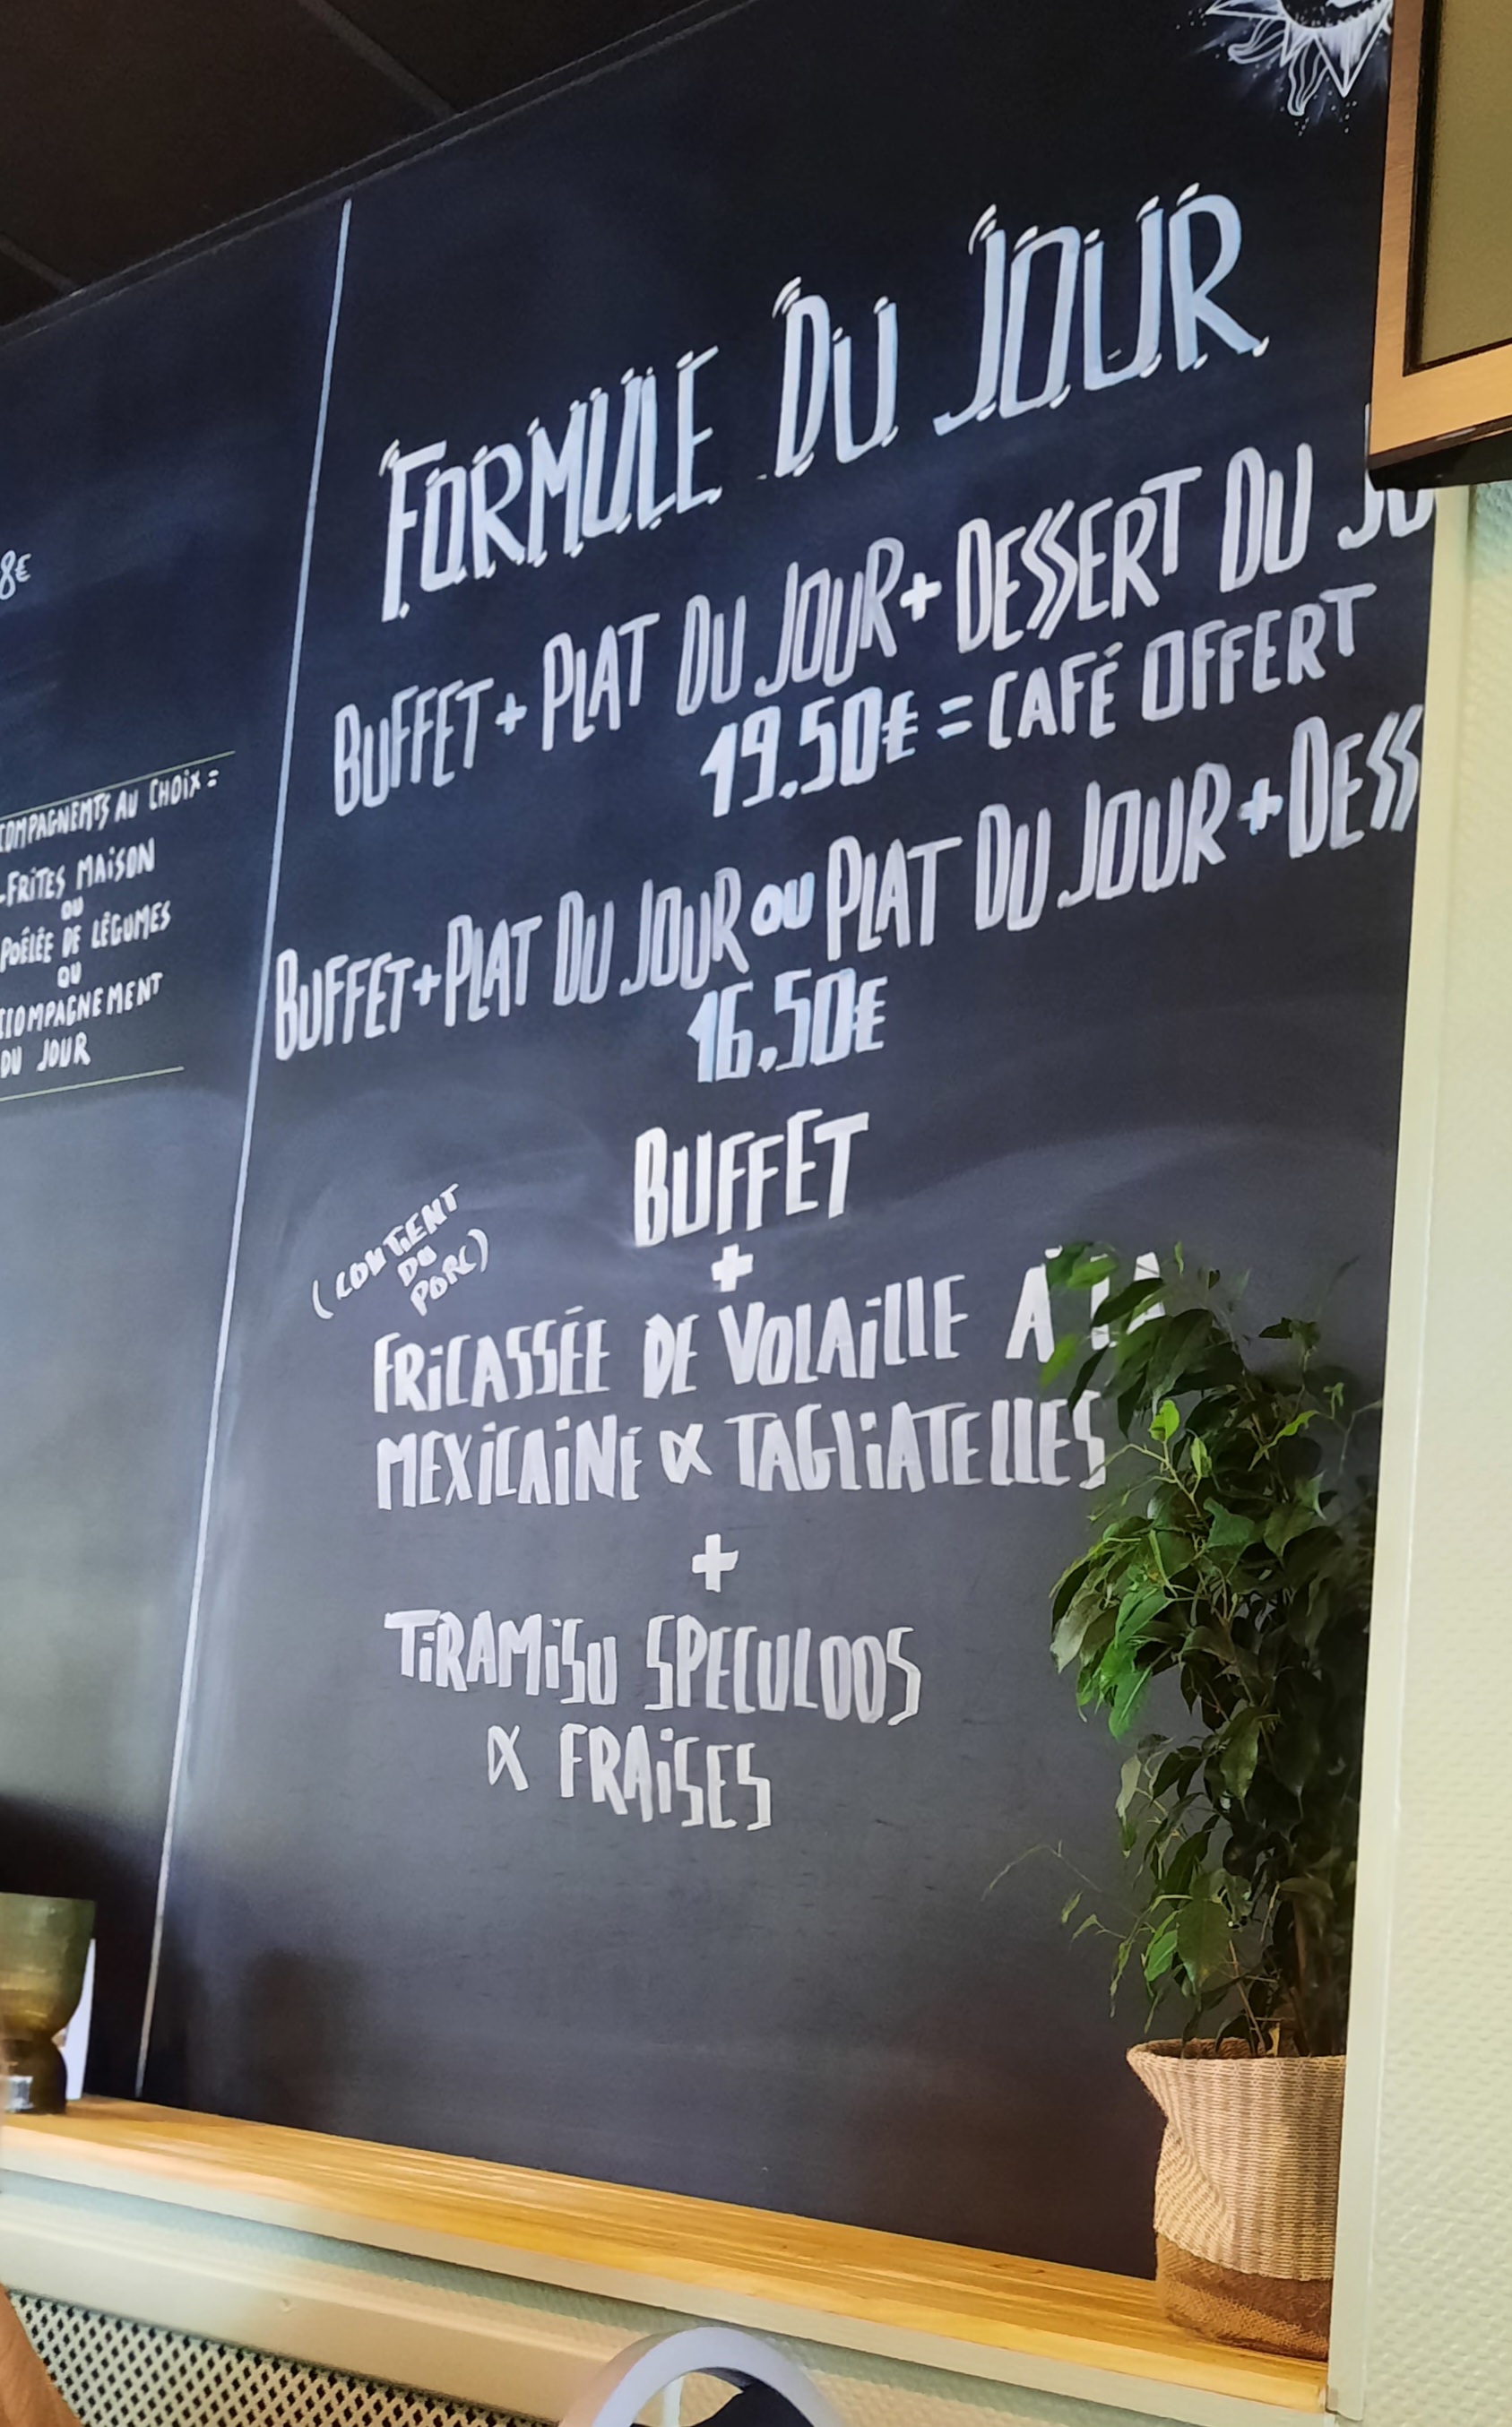 8€
COMPAGNEMTS AU CHOIX =
-FRITES MAISON
OU
POÊLÉE DE LÉGUMES
OU
CCOMPAGNEMENT
DU JOUR
FORMULE DU JOUR
BUFFET + PLAT DU JOUR + DESSERT DU JOU
19.50€ = CAFÉ OFFERT
BUFFET+PLAT DU JOUR OU PLAT DU JOUR + DESS
16.50€
BUFFET
+
(CONTIENT
DU
PORC)
FRICASSÉE DE VOLAILLE À LA
MEXICAINE & TAGLIATELLES
+
TIRAMISU SPECULOOS
& FRAISES